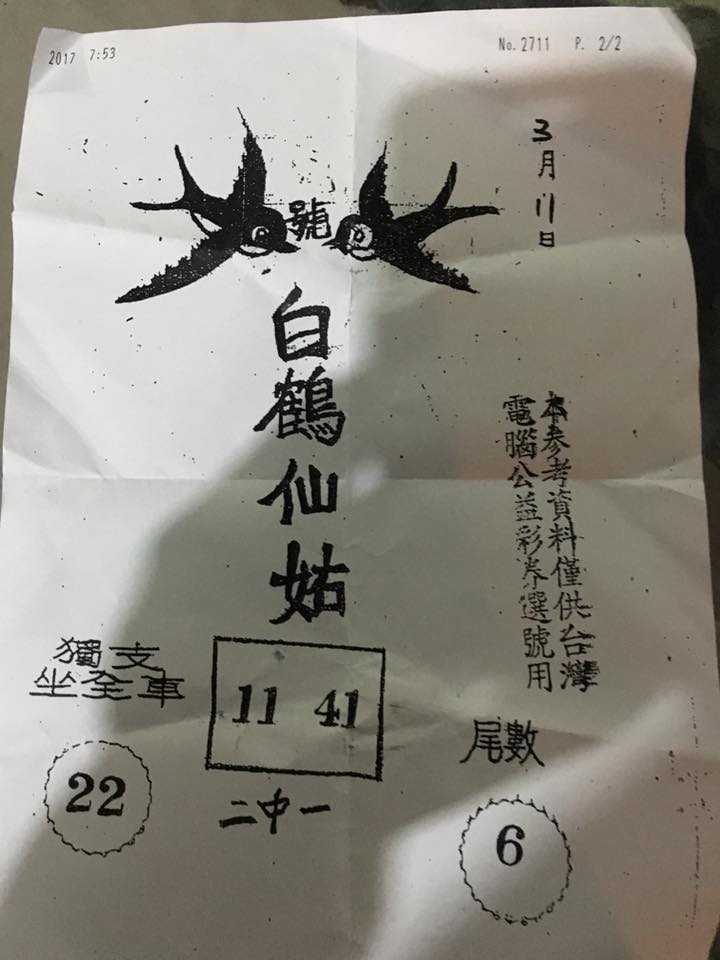 2017 7:53
No.2711 P. 2/2
3月11日
號
白鶴仙姑
本参考資料僅供台灣
電腦公益彩券選號用
獨支
坐全車
22
11 41
二中一
尾數
6